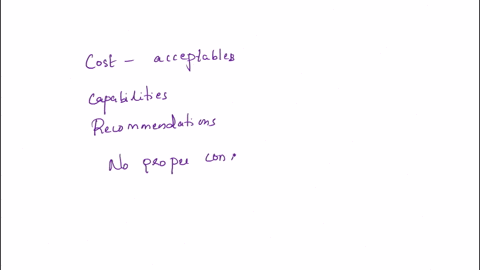 Cost - acceptables
Capabilities
Recommendations
No proper con